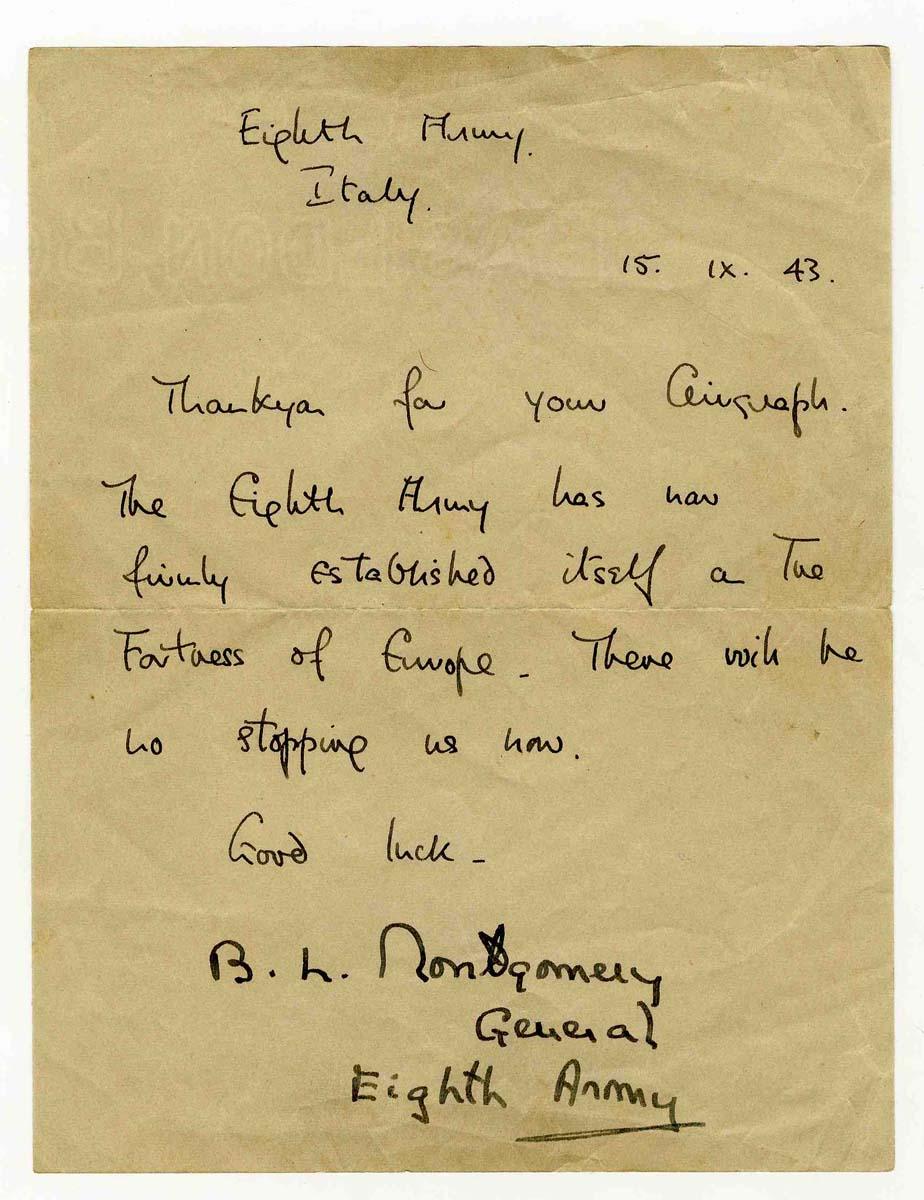 Eighth Army.
Italy.
15. IX. 43.
Thankyou for your Airgraph.
The Eighth Army has now
firmly established itself on the
Fortress of Europe - There will be
no stopping us now.
Good luck -
B. L. Montgomery
General
Eighth Army